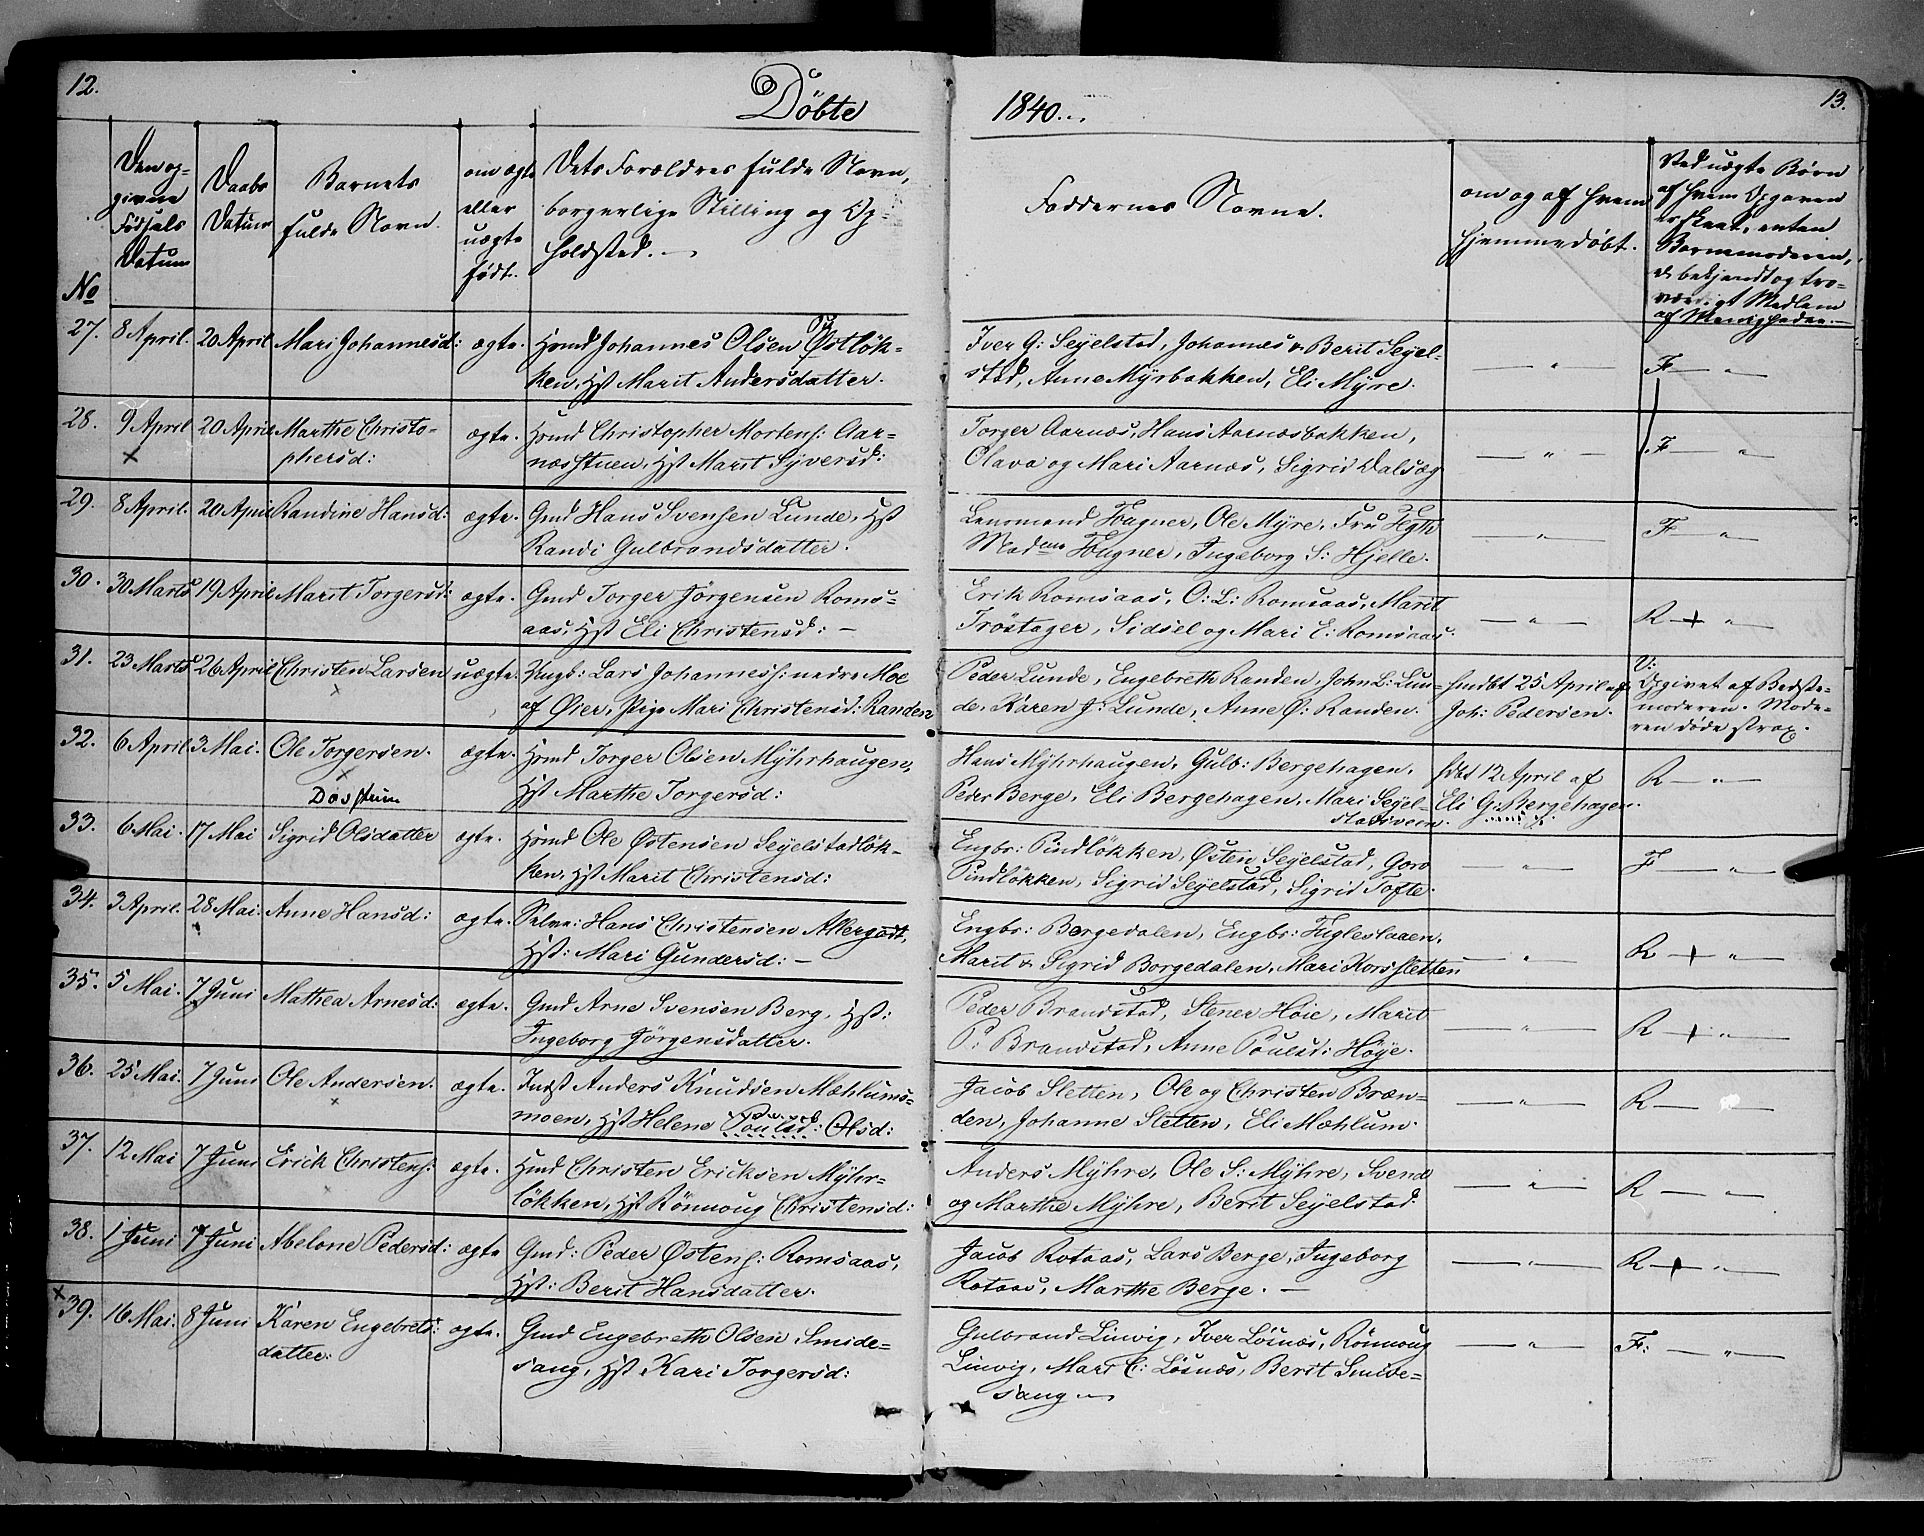 12.
Döbte
1840...
13.
No
Den op-
givne
Födsels
Datum
Daabs
Datum
Barnets
fulde Navn.
om ægte
eller
uægte
födt.
Dets Forældres fulde Navn,
borgerlige Stilling og Op-
holdsted. —
Faddernes Navne.
om og af hvem
hjemmedöbt.
Ved uægte Börn
af hvem Opgaven
er skeet, enten
Barnemoderen,
et bekjendt og tro-
værdigt Medlem
af Menigheden. —
27. 8 April. 20 April Mari Johannesd: ægte. Hmd Johannes Olsen Östlök-
ken, Hst Marit Andersdatter.
Iver G: Seyelstad, Johannes & Berit Seyel-
stad, Anne Myrbakken, Eli Myre.
— " —
F — " —
28. 9 April 20 April Marthe Christo-
phersd: ægte. Hmd Christopher Mortens: Aar-
næsstuen, Hst Marit Syversd:
Torger Aarnæs, Hans Aarnæsbakken,
Olava og Mari Aarnæs, Sigrid Dalsæg
— " —
F — " —
29. 8 April. 20 April Randine Hansd: ægte. Gmd Hans Svensen Lunde, Hst
Randi Gulbrandsdatter.
Lensmand Hagner, Ole Myre, Fru Hegth
Madme Hagner, Ingeborg S: Hjelle.
— " —
F — " —
30. 30 Marts 19 April Marit Torgersd: ægte. Gmd Torger Jörgensen Roms-
aas, Hst Eli Christensd: —
Erik Romsaas, O: L: Romsaas, Marit
Tröstager, Sidsel og Mari E: Romsaas.
— " —
R + " —
31. 23 Marts 26 April Christen Larsen uægte. Ungk: Lars Johanness: nedre Moe
af Öier, Pige Mari Christensd: Randen
Peder Lunde, Engebreth Randen, John L: Lun-
de, Karen J: Lunde, Anne Ö: Randen.
hmdbt 25 April af
Joh: Pedersen.
U:
Opgivet af Bedste-
moderen. Mode-
ren döde strax.
32. 6 April 3 Mai. Ole Torgersen. ægte. Hmd Torger Olsen Myhrhaugen,
Hst Marthe Torgersd:
Hans Myhrhaugen, Gulb: Bergehagen,
Peder Berge, Eli Bergehagen, Mari Seyel-
stadsveen.
hdbt 12 April af
Eli G: Bergehagen.
R — " —
33. 6 Mai. 17 Mai Sigrid Olsdatter ægte. Hmd Ole Östensen Seyelstadlök-
ken, Hst Marit Christensd:
Engbr: Pindlökken, Östen Seyelstad, Goro
Pindlökken, Sigrid Seyelstad, Sigrid Tofte.
— " —
F — " —
34. 3 April. 28 Mai. Anne Hansd: ægte. Selve: Hans Christensen Allergodt,
Hst: Mari Gundersd: —
Engbr: Borgedalen, Engbr: Fugleslaaen,
Marit & Sigrid Borgedalen, Mari Korssletten
— " —
R + " —
35. 5 Mai. 7 Juni Mathea Arnesd: ægte. Gmd Arne Svensen Berg, Hst:
Ingeborg Jörgensdatter.
Peder Brandstad, Stener Höie, Marit
P: Brandstad, Anne Poulsd: Höye.
— " —
R + " —
36. 25 Mai. 7 Juni Ole Andersen. ægte. Indst Anders Knudsen Mæhlums-
moen, Hst Helene Poulsd: Olsd:
Jacob Sletten, Ole og Christen Bræn-
den, Johanne Sletten, Eli Mæhlum.
— " —
R — " —
37. 12 Mai 7 Juni Erick Christens: ægte. Hmd Christen Ericksen Myhr-
lökken, Hst Rönnoug Christensd:
Anders Myhre, Ole S: Myhre, Svend
og Marthe Myhre, Berit Seyelstad
— " —
R — " —
38. 1 Juni 7 Juni Abelone Pedersd: ægte Gmd: Peder Östens: Romsaas,
Hst: Berit Hansdatter.
Jacob Rotaas, Lars Berge, Ingeborg
Rotaas, Marthe Berge. —
— " —
R + " —
39. 16 Mai. 8 Juni Karen Engebrets-
datter: ægte. Gmd Engebreth Olsen Smide-
sang, Hst Kari Torgersd:
Gulbrand Linvig, Iver Lösnæs, Rönnoug
Linvig, Mari C: Lösnæs, Berit Smide-
sang —
— " —
F: — " —